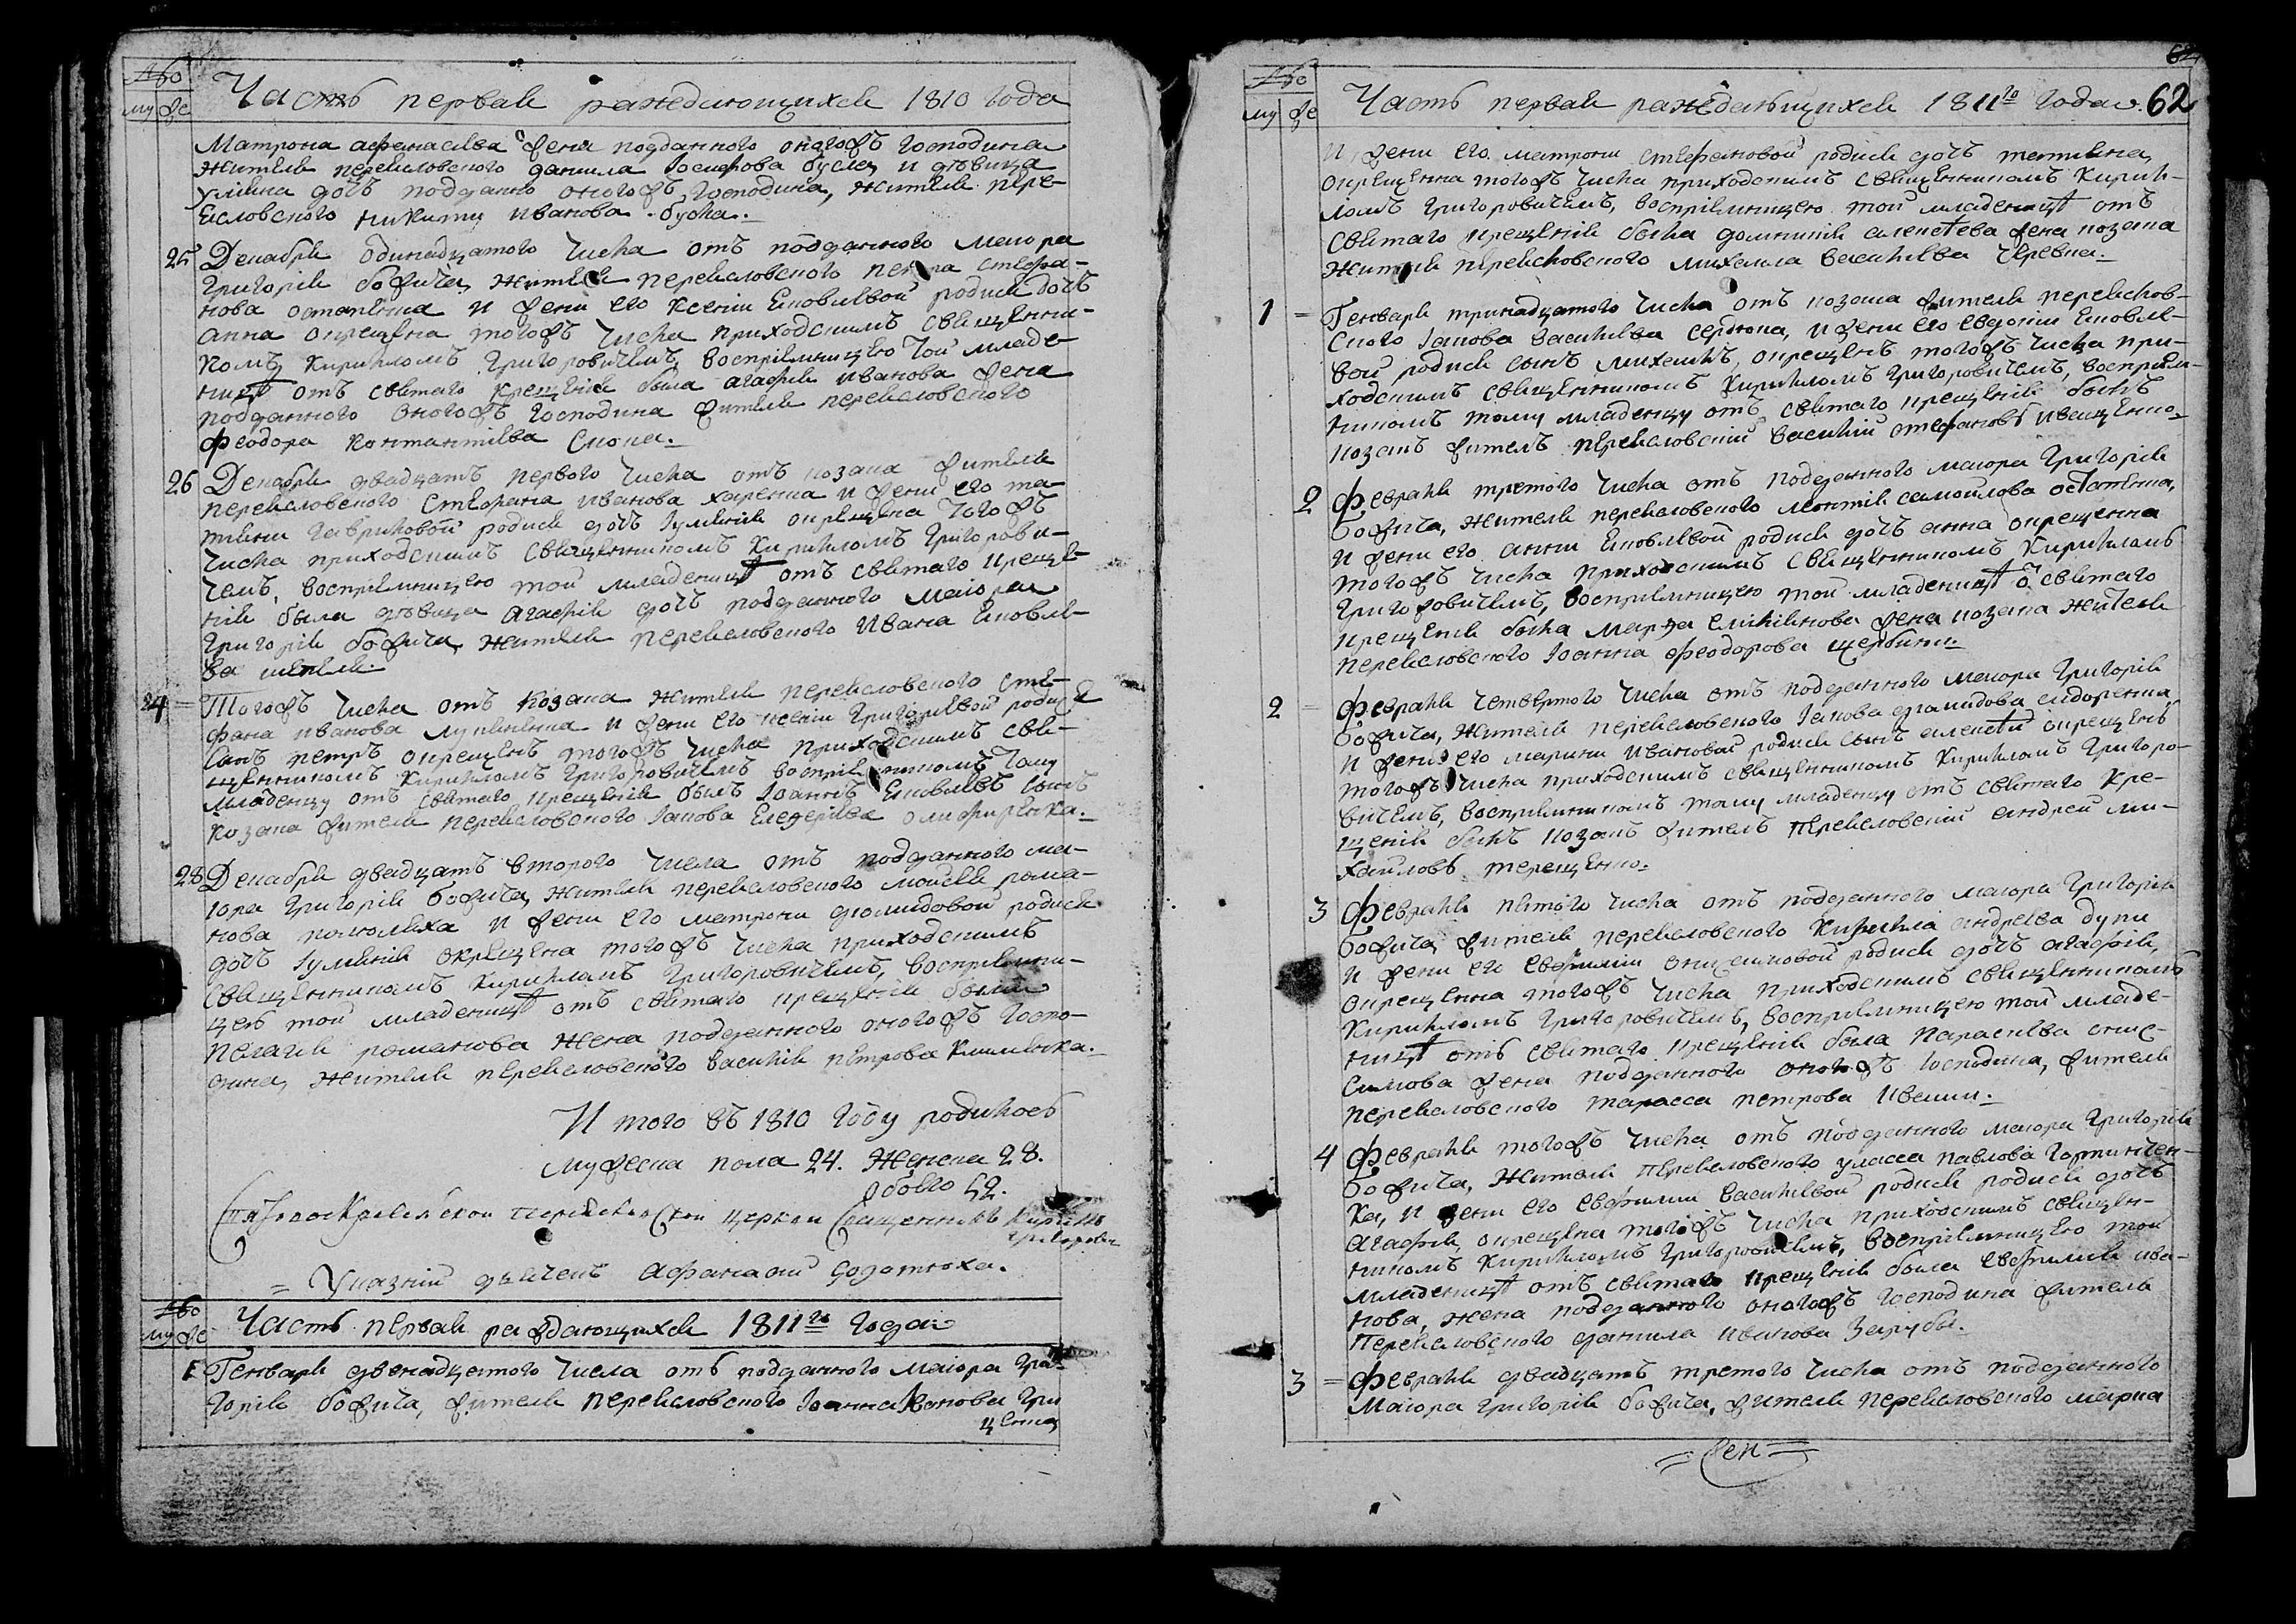 Часть первая раждающихся 1810 года
му же
Матрона афанасиева жена подданного оногожъ господина
жителя переясловского данила Іосифова буслы и девица
дочь подданного оногожъ господина, жителя пере-
ясловского никиты иванова буска.
25 Декабря одинадцатого числа отъ подданного маиора
Григорія божича, жителя переясловского петра стефа-
нова остапенка и жени его ксеніи яковлевой родися дочь
анна окрещена тогожъ числа приходскимъ священни-
комъ Кирилломъ Григоровичемъ, воспріемницею той младе-
ницѣ отъ святаго крещенія была агафія иванова жена
подданного оногожъ господина жителя переясловского
феодора константиева
26 Декабря двадцать первого числа отъ козака жителя
переясловского стефана иванова харенка и жени его та-
тияни гавриловой родися дочь Іулиянія окрещена тогожъ
числа приходскимъ священникомъ Кирилломъ Григорови-
чемъ, воспріемницею той младеницѣ отъ святаго креще-
нія была девица агафія дочь подданного маіора
Григорія божича жителя переясловского ивана яковле-
ва
24 = Тогожъ числа отъ козака жителя переясловского сте-
фана иванова и жени его ксеніи григориевой родися
сынъ петръ окрещенъ тогожъ числа приходскимъ свя-
щенникомъ Кирилломъ Григоровичемъ воспріемникомъ тому
младенцу отъ святаго крещенія былъ Іоаннъ яковлевъ сынъ
козака жителя переясловского Іакова
28 Декабря двадцать второго числа отъ подданного ма-
іора Григорія божича, жителя переясловского моисея рома-
нова и жени его матрони діомидовой родися
дочь Іулиянія окрещена тогожъ числа приходскимъ
священникомъ Кирилломъ Григоровичемъ, воспріемни-
цею той младеницѣ отъ святаго крещенія была
пелагія романова жена подданного оногожъ госпо-
дина, жителя переясловского василія петрова клименка.
И того въ 1810 году родилось
мужеска пола 24. Женска 28.
Обоего 52.
переясловской церкви священникъ Кириллъ
Григорович
= Указній дячекъ афанасій
му же
Часть первая раждающихся 1811го года
1 Генваря двенадцатого числа отъ подданного маіора Гри-
горія божича, жителя переясловского Іоанна Конова Гри
ценка
62
му же
Часть первая раждающихся 1811го года. 62
и жени его матрони стефановой родися дочь татияна,
окрещенна тогожъ числа приходскимъ священникомъ Кирил-
ломъ григоровичемъ, воспріемницею той младеницѣ отъ
святаго крещенія была домникія алексѣева жена козака
жителя переясловского михаила василиева черевка.
1 = Генваря тринадцатого числа отъ козака жителя переяслов-
ского Іакова василиева сердюка, и жени его евдокіи яковле-
вой родися сынъ михаилъ, окрещенъ тогожъ числа при-
ходскимъ священникомъ Кирилломъ григоровичемъ, воспріем-
никомъ тому младенцу отъ святаго крещенія былъ
козакъ житель переясловскій василій стефановъ иващенко.
2 февраля третого числа отъ подданного маиора Григорія
божича, жителя переясловского леонтія самоилова остапенка,
и жени его анни яковлевой родися дочь анна окрещенна
тогожъ числа приходскимъ священникомъ Кирилломъ
григоровичемъ, воспріемницею той младеницѣ ѿ святаго
крещенія была марѳа жена козака жителя
переясловского Іоанна феодорова щербини.
2 = февраля четвертого числа отъ подданного маиора Григорія
божича, жителя переясловского Іакова діомидова сидоренка,
и жени его марини ивановой родися сынъ алексѣй окрещенъ
тогожъ числа приходскимъ священникомъ Кирилломъ Григоро-
вичемъ, воспріемникомъ тому младенцу отъ святаго кре-
щенія былъ козакъ житель переясловскій андрей ми-
хайловъ терещенко.
3 февраля пятого числа отъ подданного маиора Григорія
божича, жителя переясловского Кирилла андреева дупи
и жени его евфиміи онисимовой родися дочь агафія,
окрещенна тогожъ числа приходскимъ священникомъ
Кирилломъ Григоровичемъ, воспріемницею той младе-
ницѣ отъ святаго крещенія была параскева они-
симова жена подданного оногожъ господина, жителя
переясловского тарасса петрова ивами.
4 февраля тогожъ числа отъ подданного маиора Григорія
божича, жителя переясловского уласса павлова
ка, и жени его евфиміи василиевой родися родися дочь
агафія, окрещена тогожъ числа приходскимъ священ-
никомъ Кирилломъ Григоровичемъ, воспріемницею той
младеницѣ отъ святаго крещенія была евфимія ива-
нова, жена подданного оногожъ господина жителя
переясловского данила иванова зарубы.
3 = февраля двадцать третого числа отъ подданного
маіора Григорія божича, жителя переясловского марка